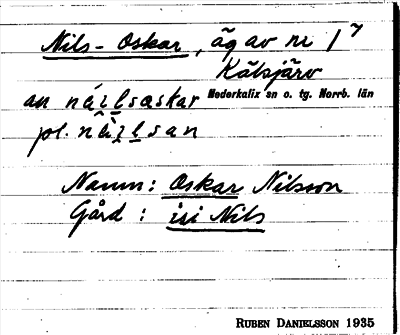 Nils-Oskar, äg av nr 1⁷
Kälsjärv
Nederkalix sn o. tg. Norrb. län
an
pl.
Namn: Oskar Nilsson
Gård : isi Nils
RUBEN DANIELSSON 1935